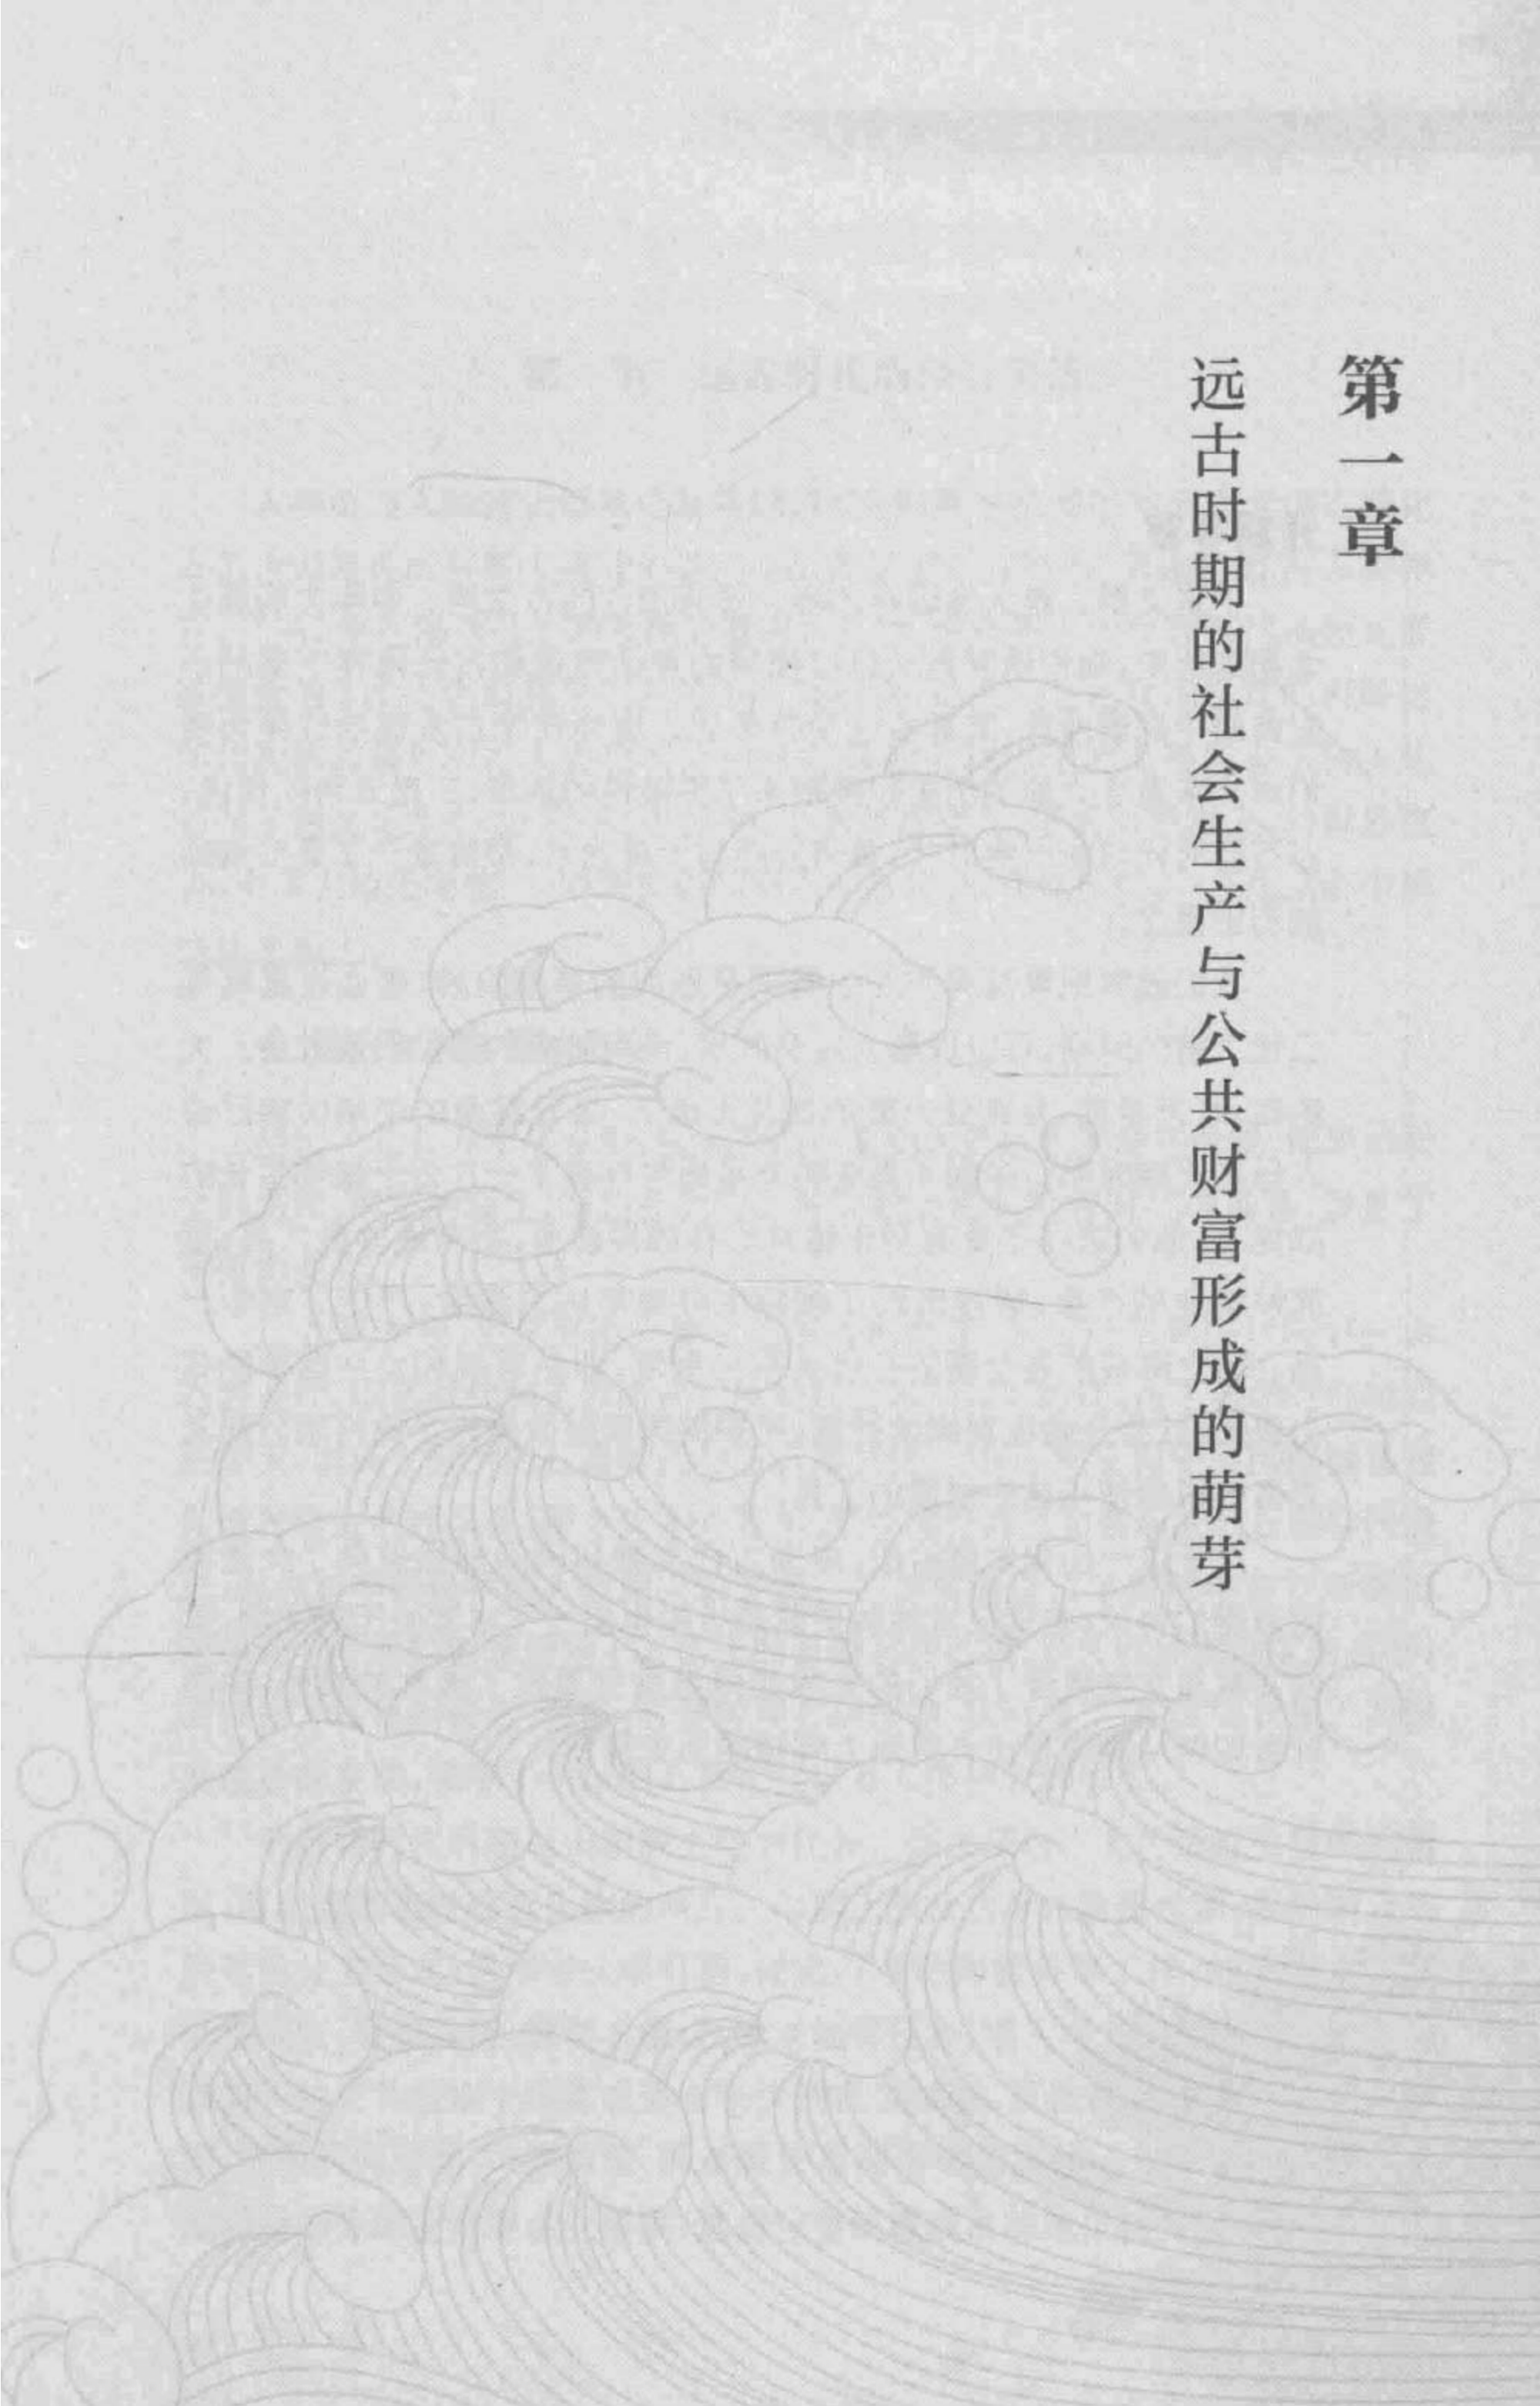 第一章
远古时期的社会生产与公共财富形成的萌芽